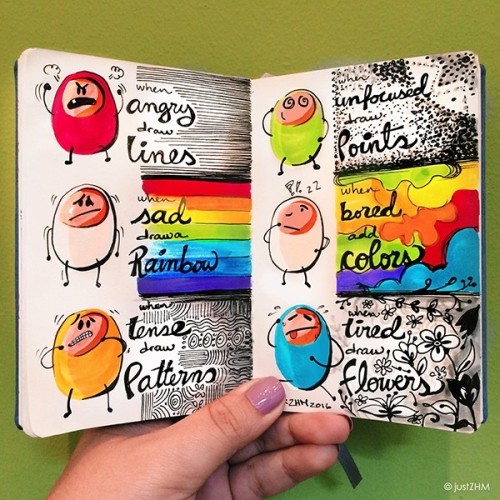 when
angry
draw
lines
when
sad
draw a
Rainbow
when
tense
draw
Patterns
when
unfocused
draw
Points
when
bored
add
colors
when
tired
draw
flowers
ZHM 2016
© justZHM